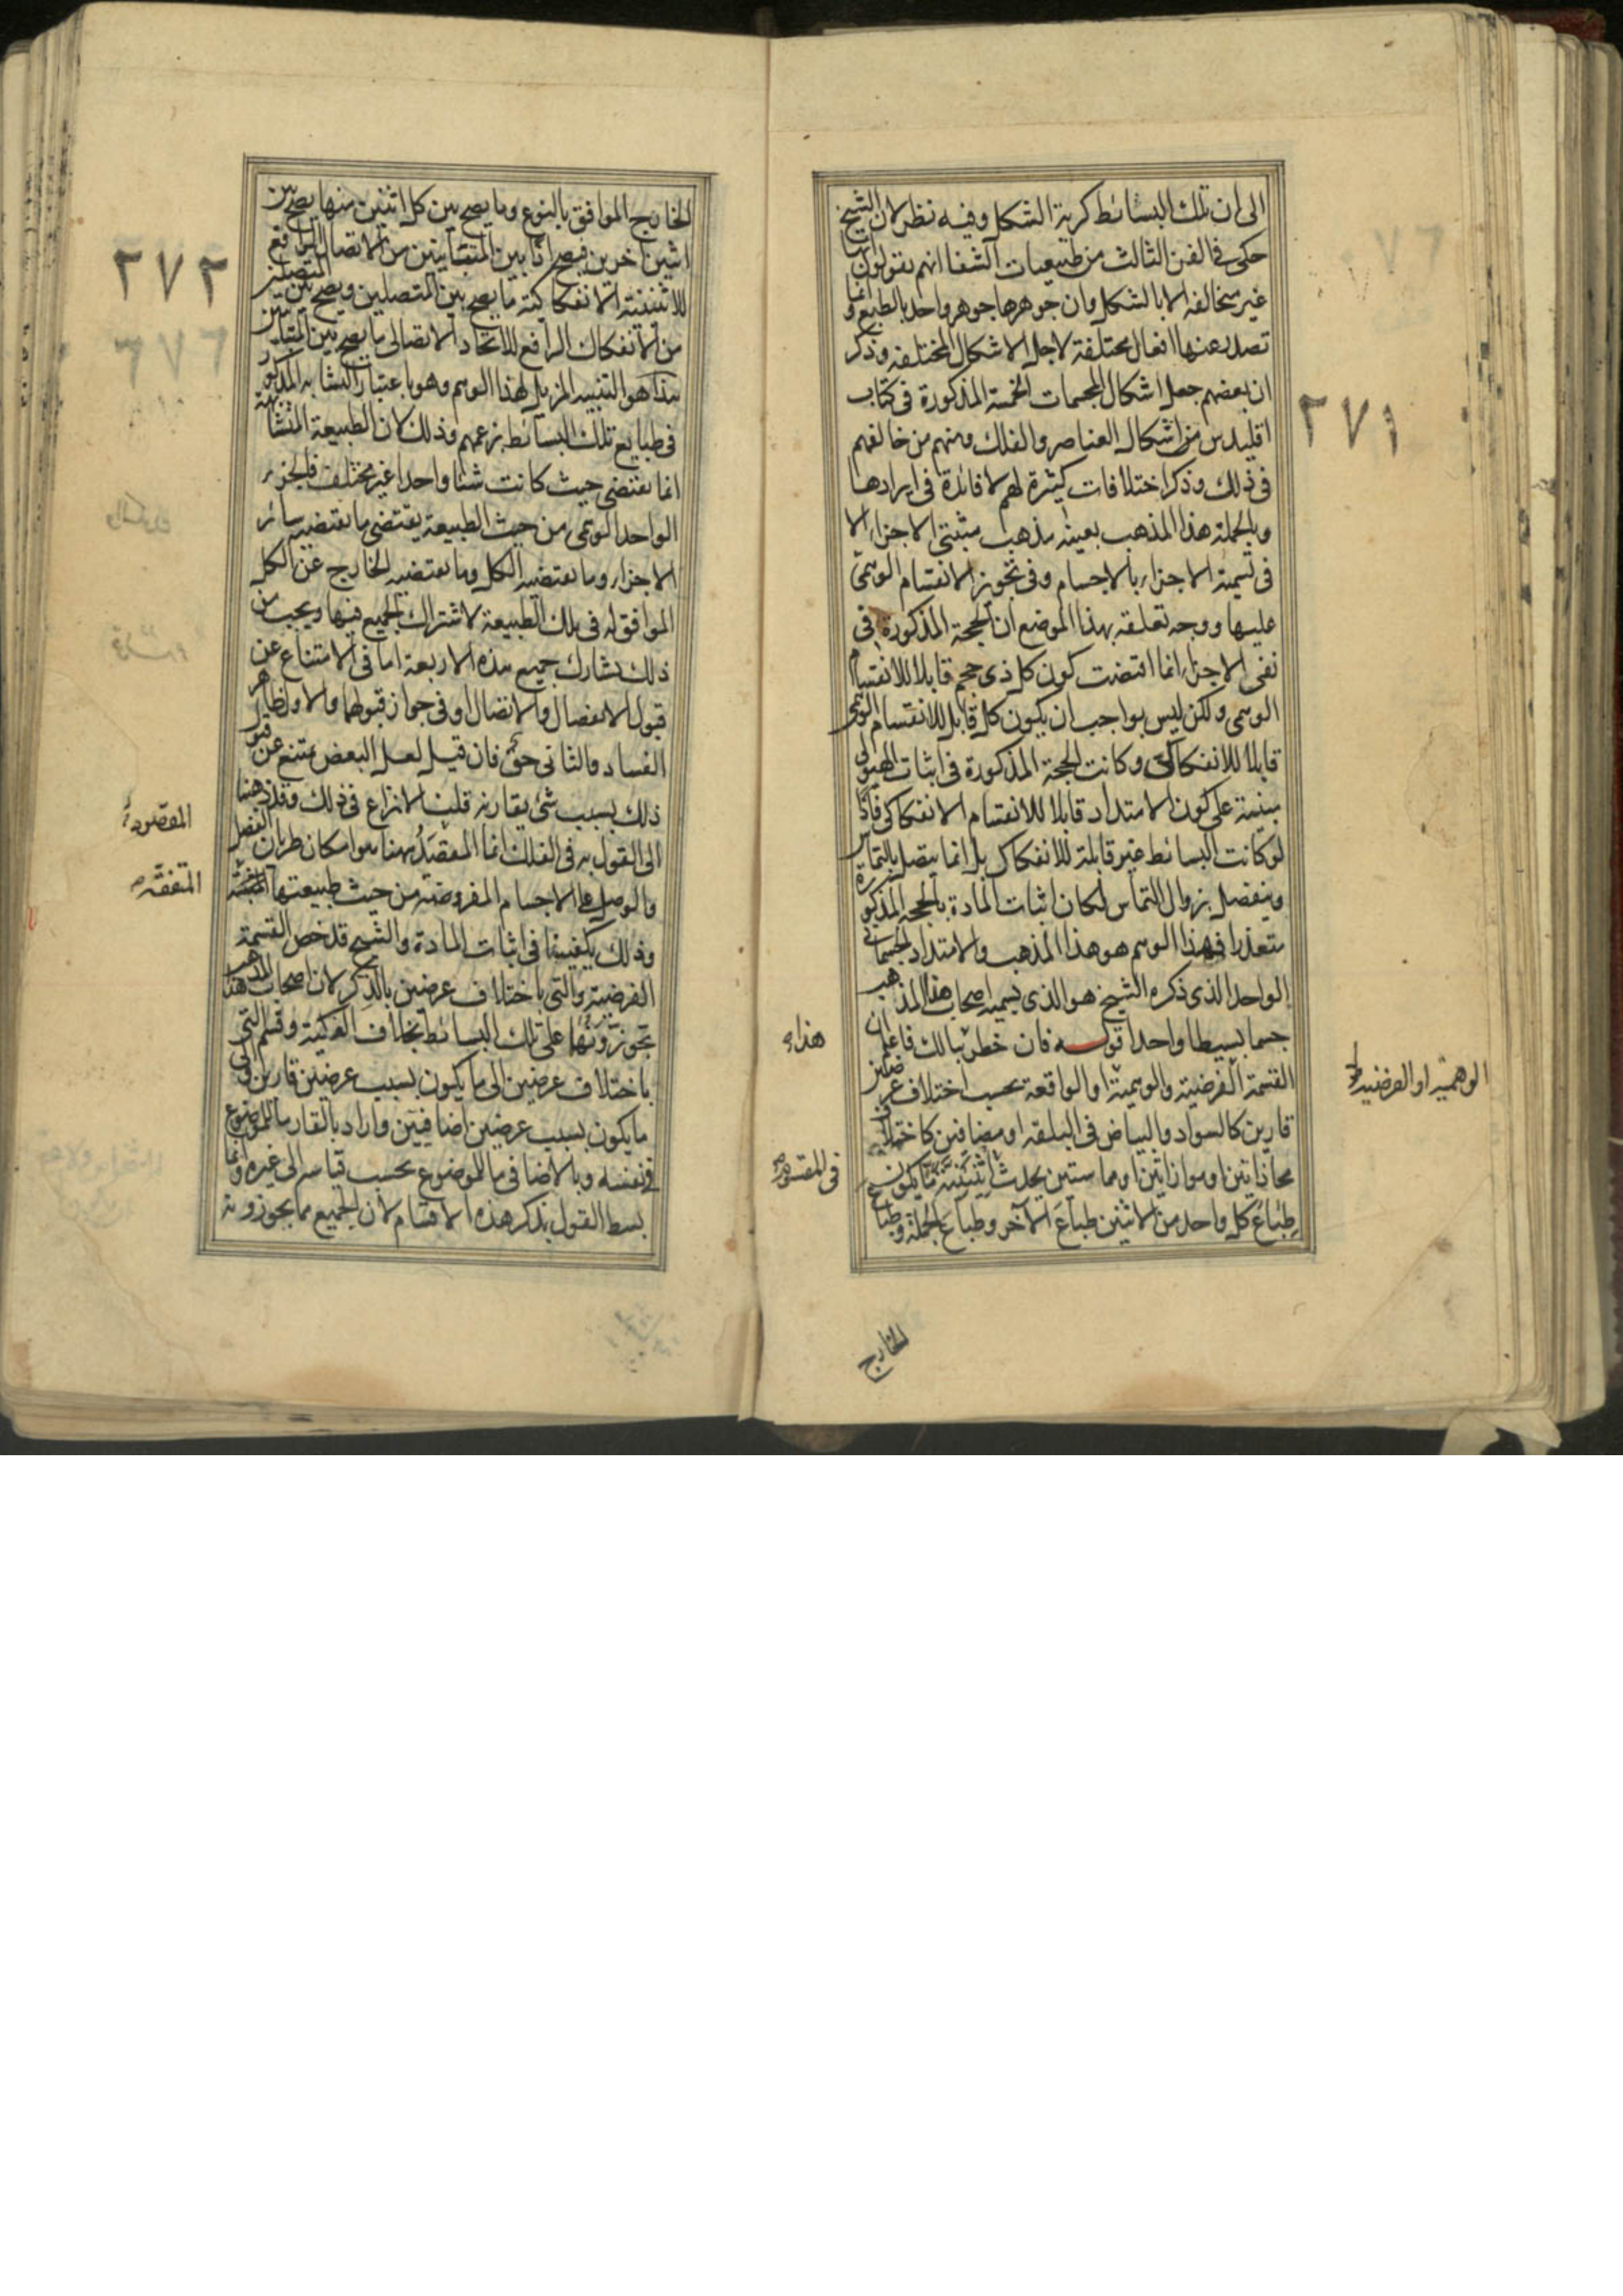 الى ان تلك البسائط كرية الشكل وفيه نظر لان الشيخ
حكى فى الفن الثالث من طبيعيات الشفا انهم يقولون انها
غير متخالفة الا بالشكل وان جوهرها جوهر واحد بالطبع وانما
تصدر عنها افعال مختلفة لاجل الاشكال المختلفة وذكر
ان بعضهم جعل اشكال المجسمات الخمسة المذكورة فى كتاب
اقليدس من اشكال العناصر والفلك ومنهم من خالفهم
فى ذلك وذكر اختلافات كثيرة لهم لا فائدة فى ايرادها
وبالجملة هذا المذهب بعينه مذهب مثبتى الاجزاء الا
فى تسمية الاجزاء بالاجسام وفى تجويز الانقسام الوهمى
عليها ووجه تعلقه بهذا الموضع ان الحجة المذكورة فى
نفى الاجزاء انما اقتضت كون كل ذى حجم قابلا للانقسام
الوهمى ولكن ليس بواجب ان يكون كل قابل للانقسام الوهمى
قابلا للانفكاك وكانت الحجة المذكورة فى اثبات الهيولى
مبنية على كون الامتداد قابلا للانقسام الانفكاكى فاذا
لو كانت البسائط غير قابلة للانفكاك بل انما يتصل بالتماس
وينفصل بزوال التماس لكان اثبات المادة بالحجة المذكورة
متعذرا فهذا الوهم هو هذا المذهب والامتداد الجسمانى
الواحد الذى ذكره الشيخ هو الذى يسميه اصحاب هذا المذهب
جسما بسيطا واحدا قوله فان خطر ببالك فاعلم ان
القسمة الفرضية والوهمية او الواقعة بحسب اختلاف عرضين
قارين كالسواد والبياض فى البلقة او مضافين كاختلاف
محاذاتين او موازاتين او مماستين يحدث اثنينية ما يكون
طباع كل واحد من الاثنين طباع الآخر وطباع الجملة وطباع
٢٧١
الوهمية او الفرضية
هذا
الخارج
الخارج الموافق بالنوع وما يصح بين كل اثنين منها يصح بين
اثنين آخرين فيصح اذا بين المتباينين من الاتصال الرافع
للاثنينية الانفكاكية ما يصح بين المتصلين ويصح بين المتصلين
من الانفكاك الرافع للاتحاد الاتصالى ما يصح بين المتباينين
هذا هو التنبيه المزيل لهذا الوهم وهو باعتبار التشابه المذكور
فى طبايع تلك البسائط بزعمهم وذلك لان الطبيعة المتشابهة
انما تقتضى حيث كانت شيئا واحدا غير مختلف فالجزء
الواحد الوهمى من حيث الطبيعة يقتضى ما تقتضيه سائر
الاجزاء وما يقتضيه الكل وما يقتضيه الخارج عن الكل
الموافق له فى تلك الطبيعة لاشتراك الجميع فيها ويجب من
ذلك تشارك جميع هذه الاربعة اما فى الامتناع عن
قبول الانفصال والاتصال او فى جواز قبولهما والاول ظاهر
الفساد والثانى حق فان قيل لعل البعض يمتنع عن قبول
ذلك بسبب شئ يقارنه قلنا لا نزاع فى ذلك وقد ذهبنا
الى القول به فى الفلك انما المقصد ههنا هو امكان طريان الفصل
والوصل على الاجسام المفروضة من حيث طبيعتها
وذلك يكفينا فى اثبات المادة والشيخ قد خص القسمة
الفرضية والتى باختلاف عرضين بالذكر لان اصحاب هذا المذهب
يجوزونها على تلك البسائط بخلاف الفكية وقسم التى
باختلاف عرضين الى ما يكون بسبب عرضين قارين والى
ما يكون بسبب عرضين اضافيين واراد بالقار ما للموضوع
فى نفسه وبالاضافى ما للموضوع بحسب قياسه الى غيره وانما
بسط القول بذكر هذه الاقسام لان الجميع مما يجوزونه
٢٧٢
٢٧٢
المقصود
المتفقة